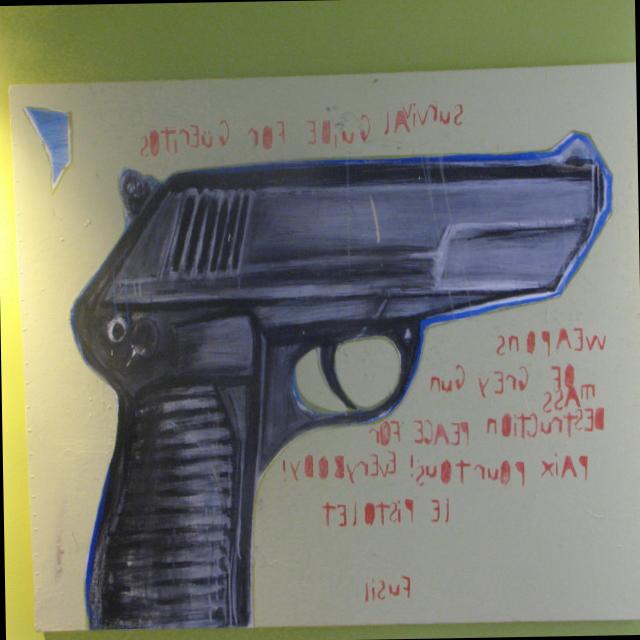 Survival Guide For Gueritos
WEAPONS
OF Grey Gun
mASS
DESTRUCTION PEACE FOR
PAIX POUR TOUS! EVERYBODY!
LE PISTOLET
FUSIL